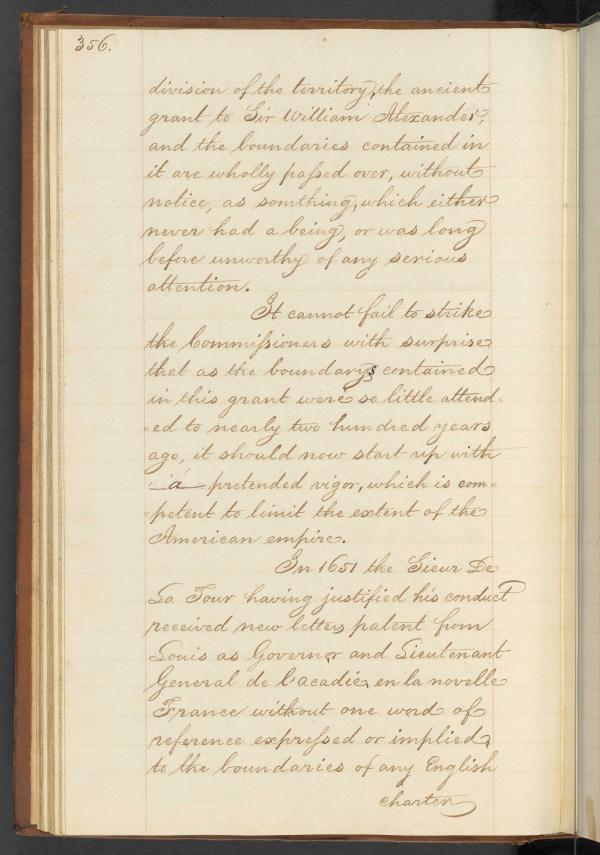 356.
division of the territory, the ancient
grant to Sir William Alexander,
and the boundaries contained in
it are wholly passed over, without
notice, as somthing, which either
never had a being, or was long
before unworthy of any serious
attention.
It cannot fail to strike
the Commissioners with surprise
that as the boundarys contained
in this grant were so little attend-
-ed to nearly two hundred years
ago, it should now start up with
a pretended vigor, which is com=
=petent to limit the extent of the
American empire.
In 1651 the Sieur De
La Tour having justified his conduct
received new letters patent from
Louis as Governor and Lieutenant
General de l'acadie, en la novelle
France without one word of
reference expressed or implied,
to the boundaries of any English
charter